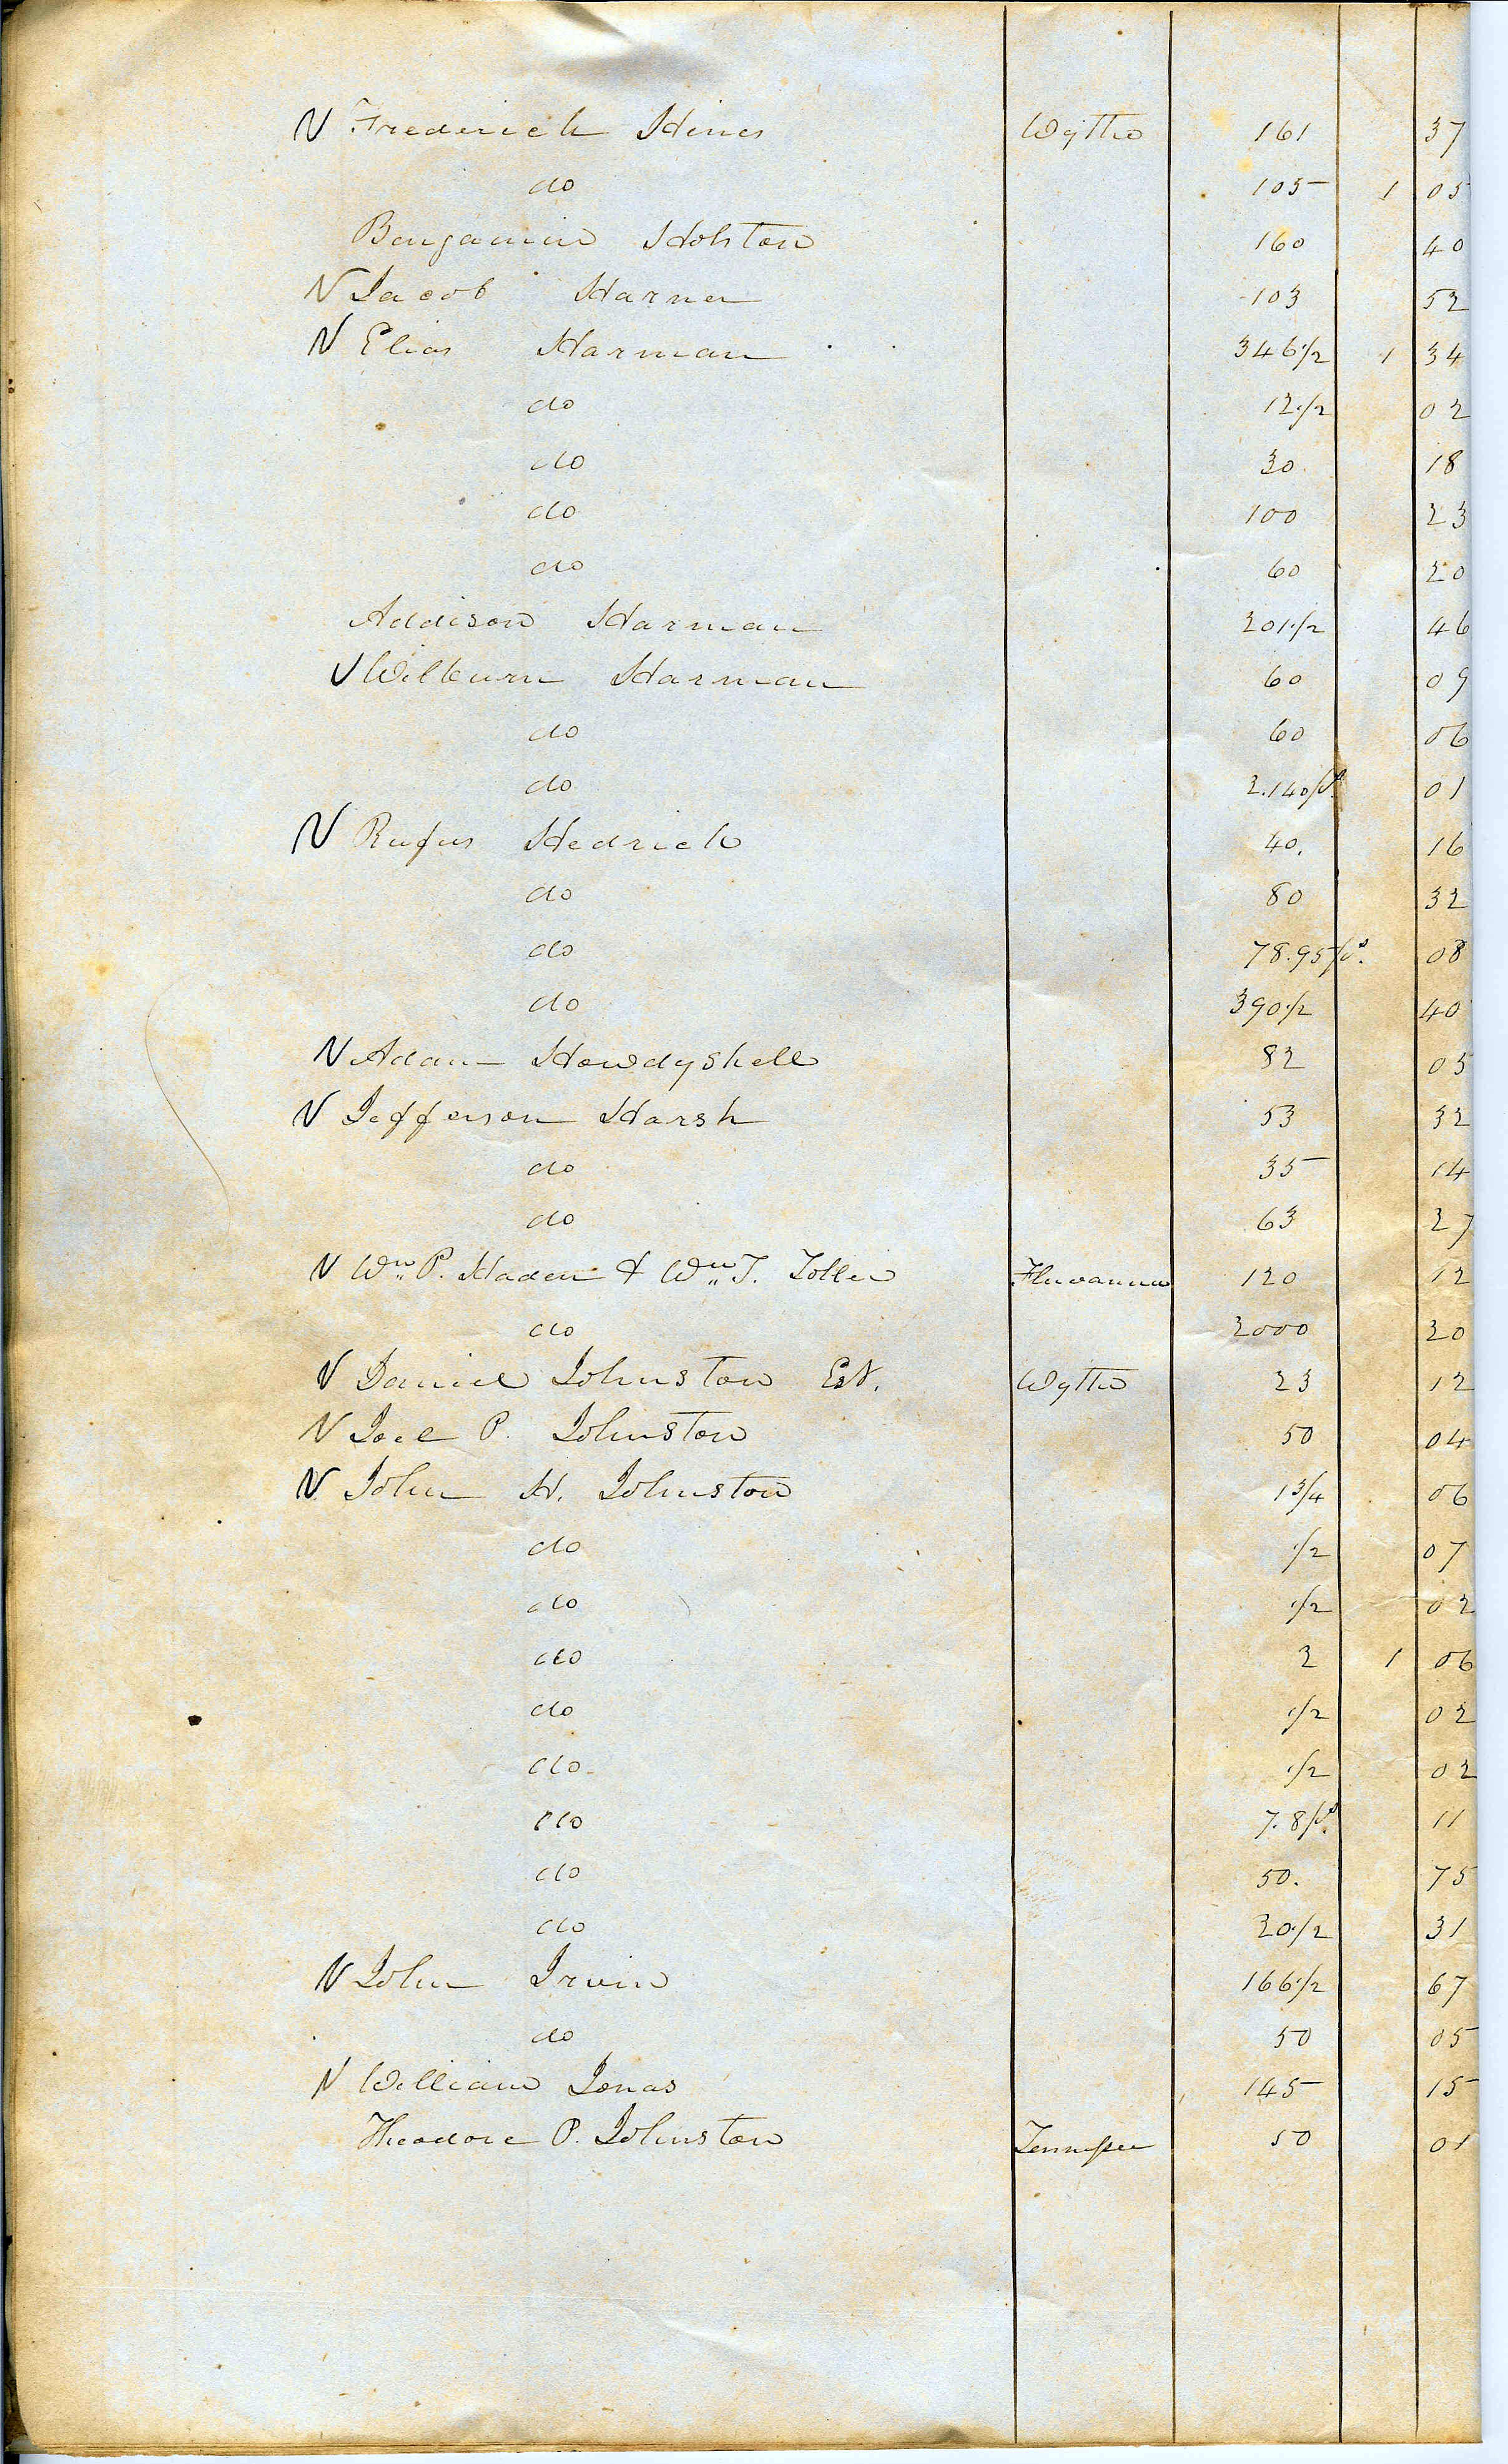 N Frederick Hines Wythe 161 37
do 105 1 05
Benjamin Holston 160 40
N Jacob Harner 103 52
N Elias Harman 346 1/2 1 34
do 12 1/2 02
do 30 18
do 100 23
do 60 20
Addison Harman 201 1/2 46
√ Wilburn Harman 60 09
do 60 06
do 2.140/ps 01
N Rufus Hedrick 40. 16
do 80 32
do 78.95/ps. 08
do 390 1/2 40
N Adam Howdyshell 82 05
N Jefferson Harsh 53 32
do 35 14
do 63 27
N Wm P. Haden & Wm T. Toller Fluvanna 120 12
do 2000 20
N Daniel Johnston Est. Wythe 23 12
N Joel P. Johnston 50 04
N John H. Johnston 1 3/4 06
do 1/2 07
do 1/2 02
do 2 1 06
do 1/2 02
do 1/2 02
do 7.8/ps. 11
do 50. 75
do 20 1/2 31
N John Irvin 166 1/2 67
do 50 05
N William Jonas 145 15
Theodore P. Johnston Tennessee 50 01